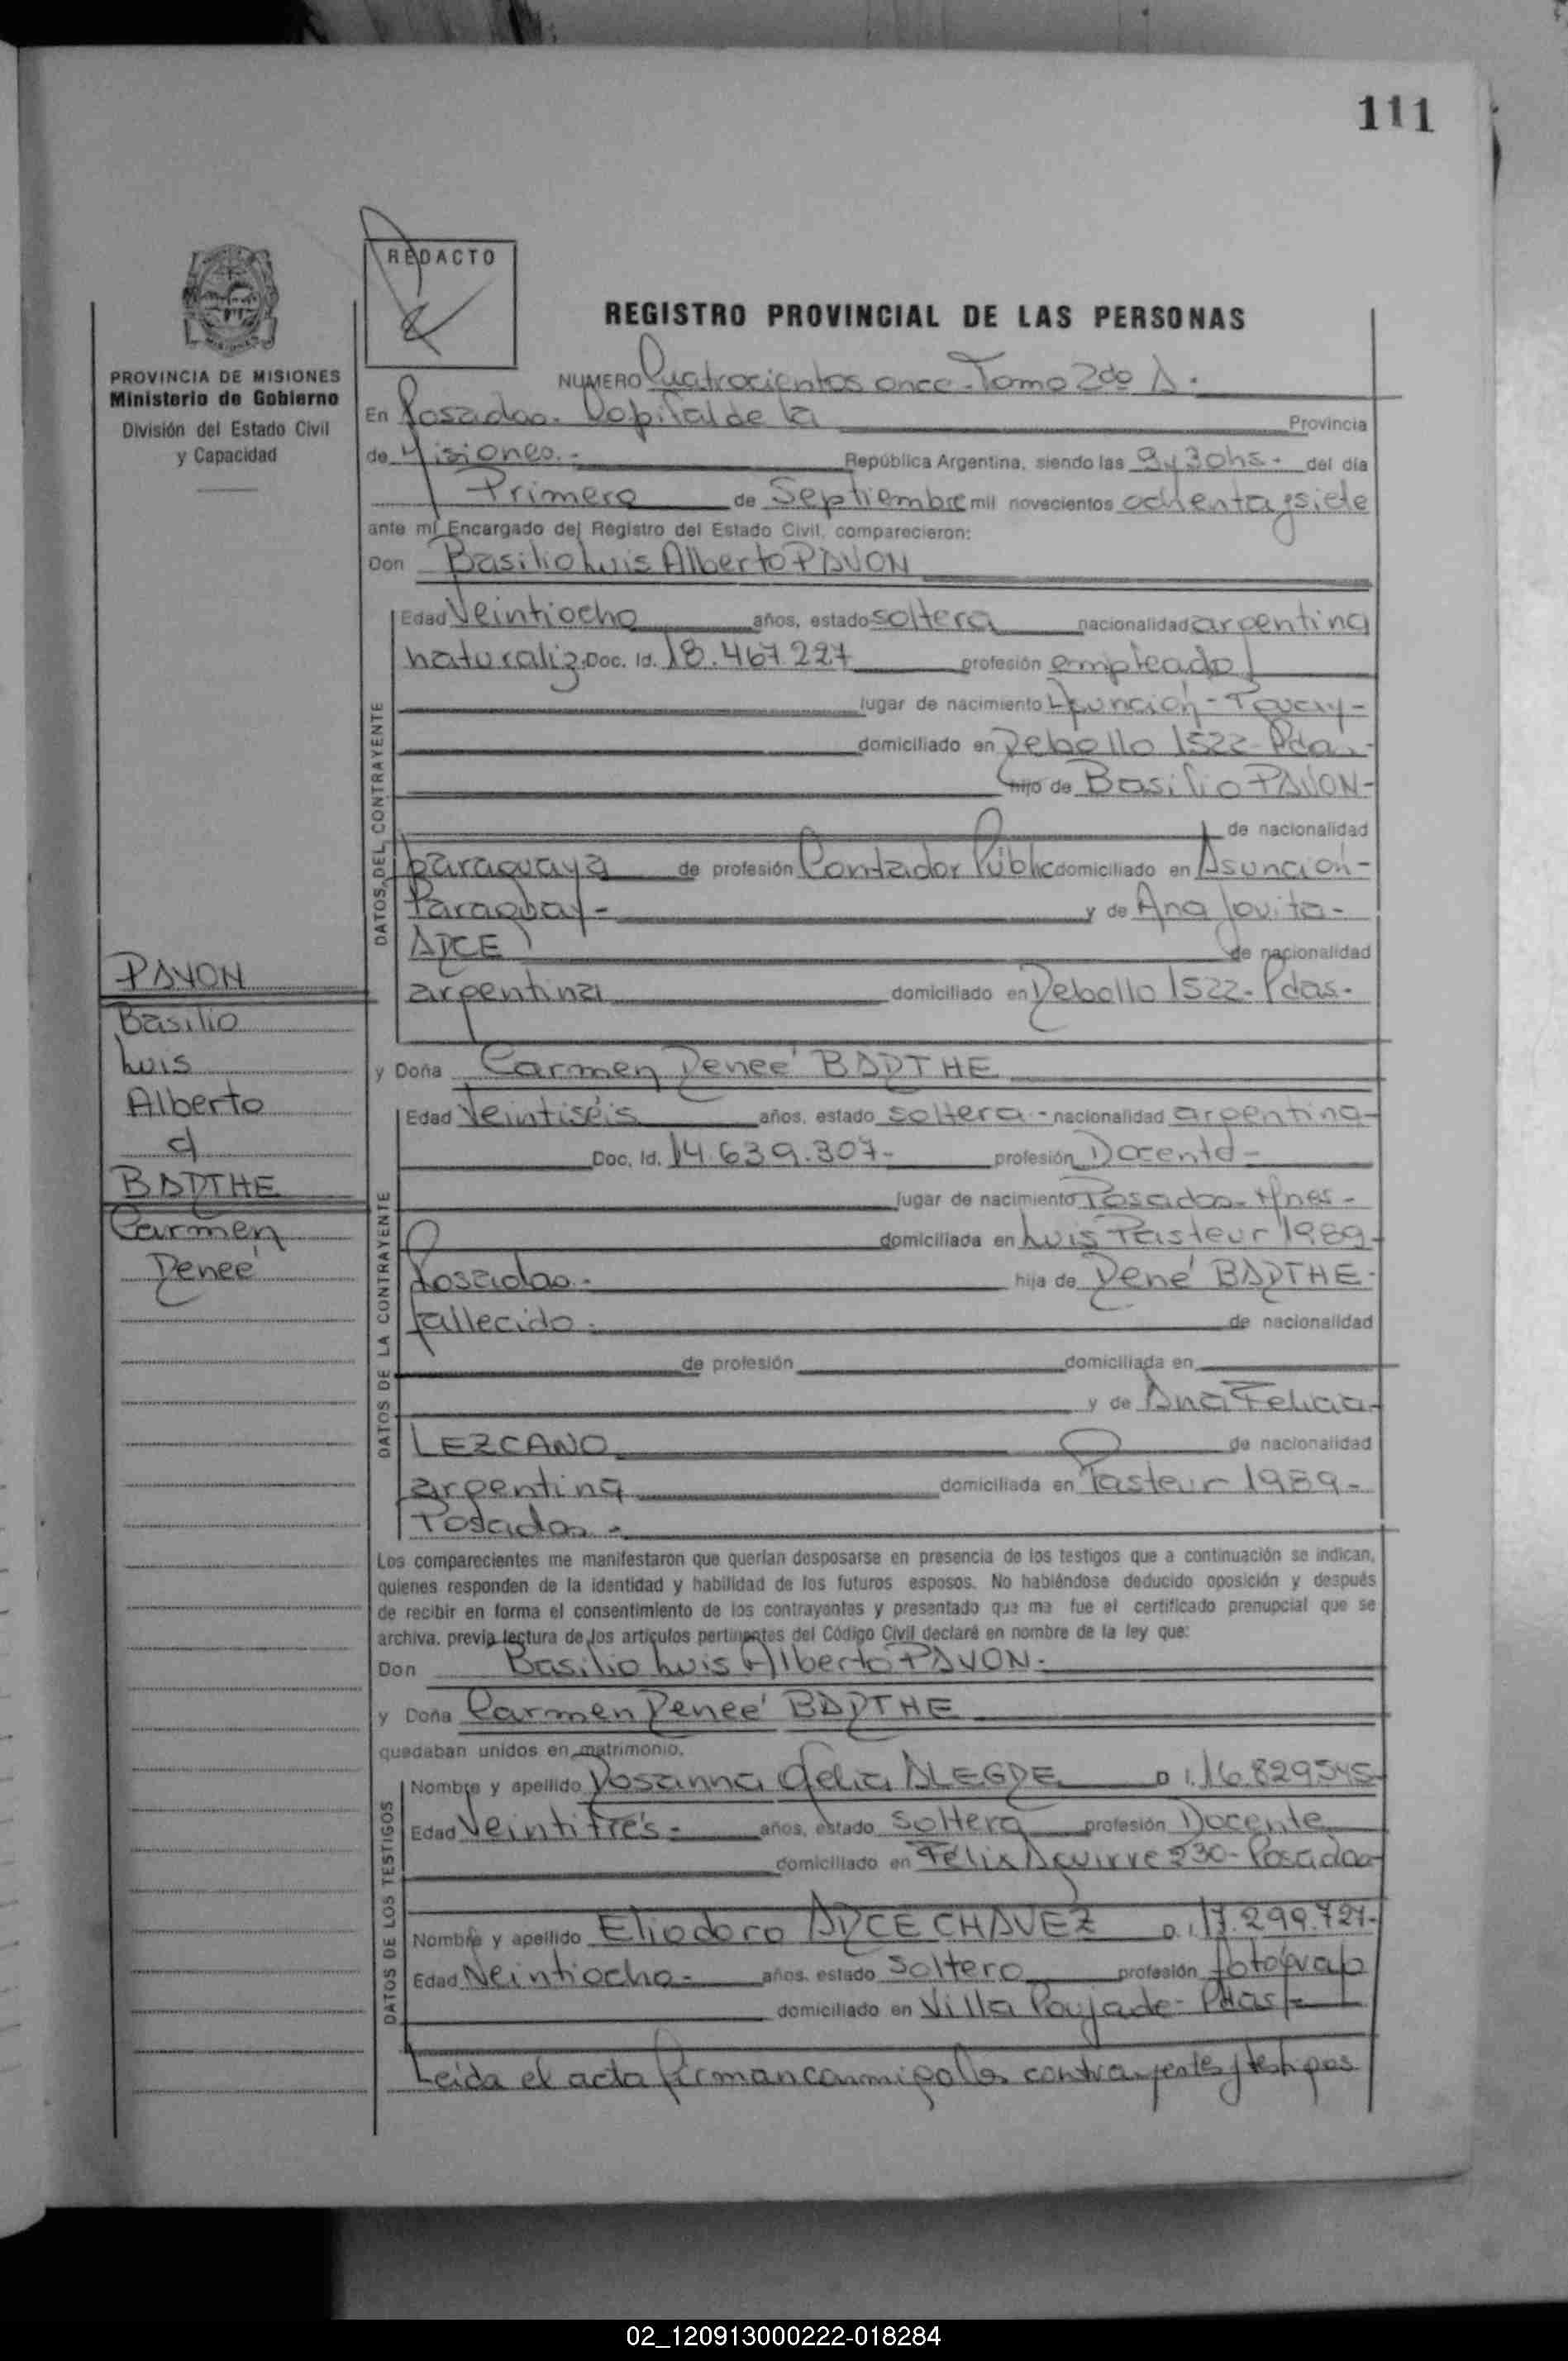 111
REDACTO
REGISTRO PROVINCIAL DE LAS PERSONAS
PROVINCIA DE MISIONES
Ministerio de Gobierno
División del Estado Civil
y Capacidad
NUMERO Cuatrocientos once - Tomo 2do A.
En Posadas - Capital de la Provincia
de Misiones.- República Argentina, siendo las 9 y 30hs - del día
Primero de Septiembre mil novecientos ochenta y siete
ante mí Encargado del Registro del Estado Civil, comparecieron:
Don Basilio Luis Alberto PAVON
DATOS DEL CONTRAYENTE
Edad Veintiocho años, estado soltero nacionalidad argentina
naturaliz. Doc. Id. 18.467.227 profesión empleado
lugar de nacimiento Asunción - Paguay -
domiciliado en Rebollo 1522 - Pdas.-
hijo de Basilio PAVON -
de nacionalidad
paraguaya de profesión Contador Públic domiciliado en Asunción -
Paraguay - y de Ana Jovita -
ARCE de nacionalidad
argentina domiciliado en Rebollo 1522 - Pdas -
PAVON
Basilio
Luis
Alberto
c/
BARTHE
Carmen
Reneé
y Doña Carmen Reneé BARTHE
DATOS DE LA CONTRAYENTE
Edad Veintiséis años, estado soltera - nacionalidad argentina -
Doc. Id. 14.639.307 - profesión Docente -
lugar de nacimiento Posadas - Mnes -
domiciliada en Luis Pasteur 1989 -
Posadas - hija de René BARTHE -
fallecido - de nacionalidad
de profesión domiciliada en
y de Ana Felicia -
LEZCANO de nacionalidad
argentina domiciliada en Pasteur 1989 -
Posadas -
Los comparecientes me manifestaron que querían desposarse en presencia de los testigos que a continuación se indican,
quienes responden de la identidad y habilidad de los futuros esposos. No habiéndose deducido oposición y después
de recibir en forma el consentimiento de los contrayentes y presentado que me fue el certificado prenupcial que se
archiva, previa lectura de los artículos pertinentes del Código Civil declaré en nombre de la ley que:
Don Basilio Luis Alberto PAVON -
y Doña Carmen Reneé BARTHE
quedaban unidos en matrimonio.
DATOS DE LOS TESTIGOS
Nombre y apellido Rosanna Delia ALEGRE D.I. 16.829545 -
Edad Veintitrés - años, estado soltera profesión Docente
domiciliado en Félix Aguirre 230 - Posadas -
Nombre y apellido Eliodoro ARCE CHAVEZ D.I. 17.299.727 -
Edad Veintiocho - años, estado soltero profesión fotógrafo
domiciliado en Villa Poujade - Pdas -
Leída el acta firman conmigo los contrayentes y testigos
02_120913000222-018284